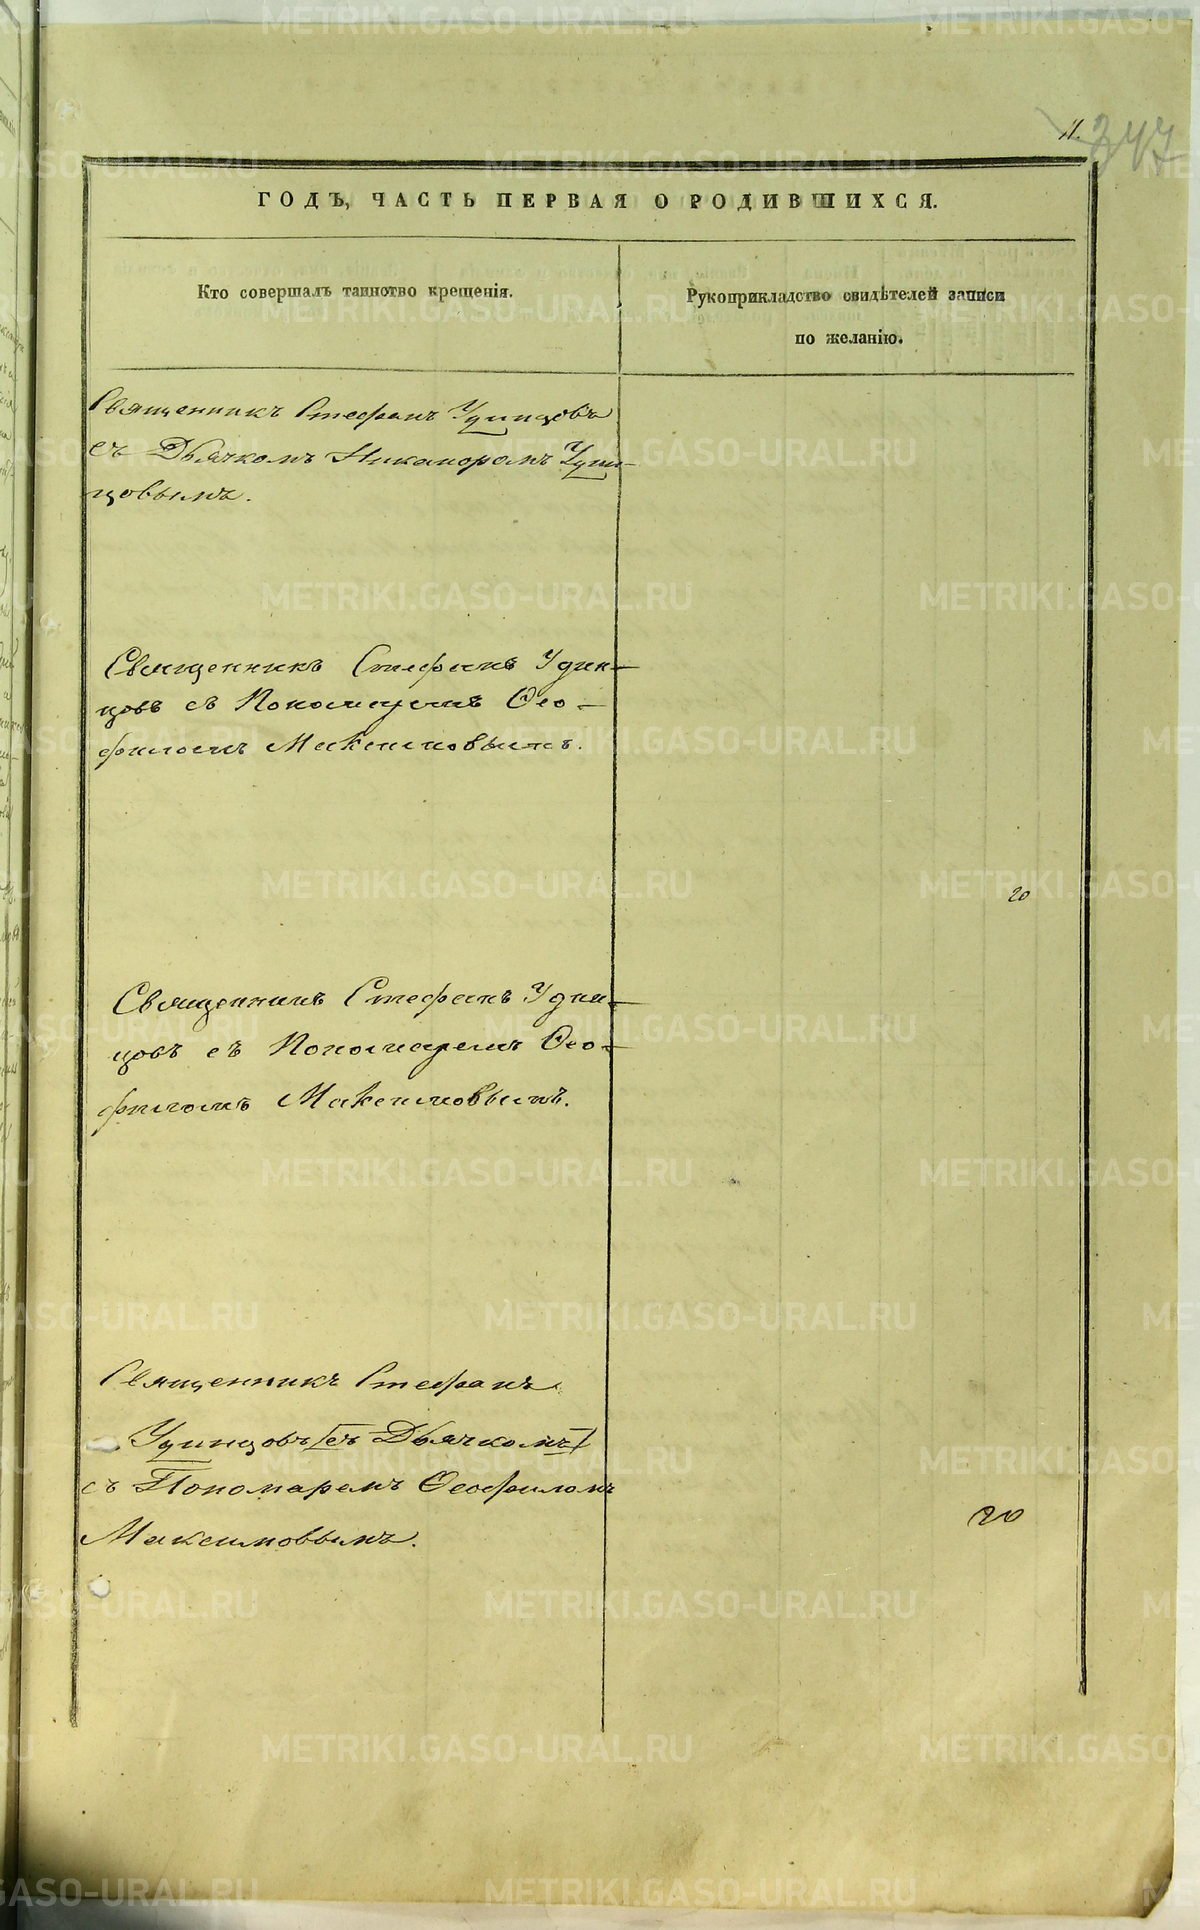 11.
347
ГОДЪ, ЧАСТЬ ПЕРВАЯ О РОДИВШИХСЯ.
Кто совершалъ таинство крещенія.
Рукоприкладство свидѣтелей записи
по желанію.
Священникъ Стефанъ Удинцовъ
съ Дьячкомъ Никаноромъ Удин-
цовымъ.
Священникъ Стефанъ Удин-
цовъ съ Пономаремъ Ѳео-
филомъ Максимовымъ.
20
Священникъ Стефанъ Удин-
цовъ съ Пономаремъ Ѳео-
филомъ Максимовымъ.
Священникъ Стефанъ
Удинцовъ [съ Дьячкомъ]
съ Пономаремъ Ѳеофиломъ
Максимовымъ.
20
METRIKI.GASO-URAL.RU